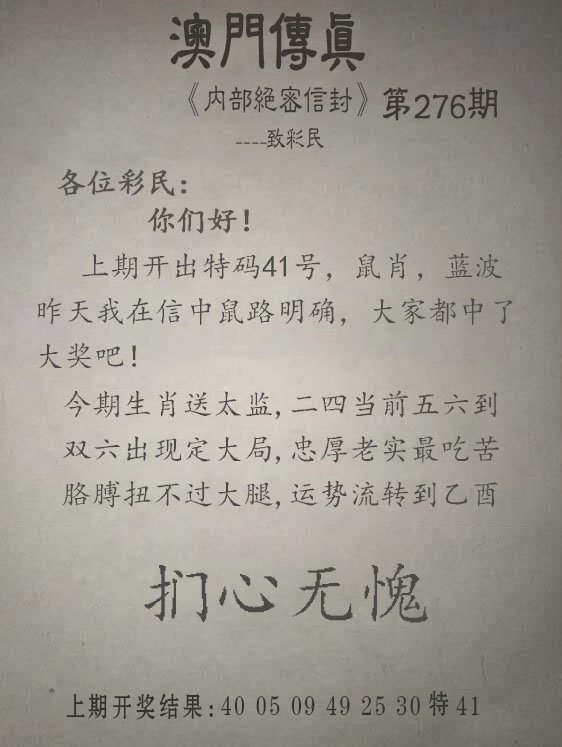 澳門傳真
《内部絕密信封》第276期
----致彩民
各位彩民：
你们好！
上期开出特码41号，鼠肖，蓝波
昨天我在信中鼠路明确，大家都中了
大奖吧！
今期生肖送太监,二四当前五六到
双六出现定大局,忠厚老实最吃苦
胳膊扭不过大腿,运势流转到乙酉
扪心无愧
上期开奖结果:40 05 09 49 25 30特41